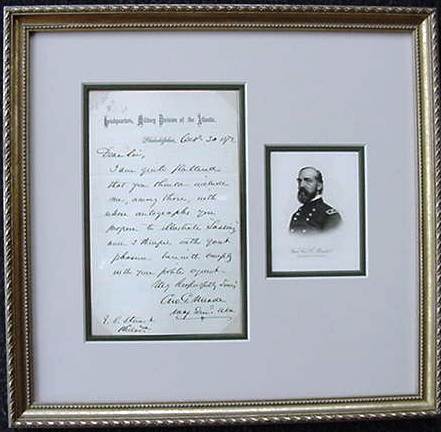 Headquarters, Military Division of the Atlantic,
Philadelphia, Oct. 30 187
Dear Sir,
I am quite flattered
that you should include
me, among those, with
whose autographs you
propose to illustrate
and I therefore with great
pleasure comply
with your polite request.
Very Respectfully Yours
Geo. G. Meade
Maj. Genl. USA
Meade